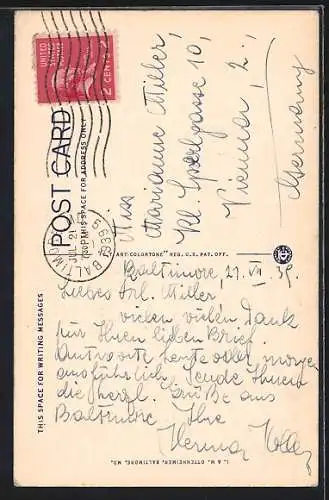 UNITED STATES POSTAGE
2 CENTS 2
BALTIMORE
JUL 21
7 30 PM
1939
POST CARD
THIS SPACE FOR ADDRESS ONLY
Miss
Marianne Miller,
Kl. Sperlgasse 10,
Vienna, 2.,
Germany
"ART-COLORTONE" REG. U.S. PAT. OFF.
THIS SPACE FOR WRITING MESSAGES
Baltimore, 21. VII 39.
Liebes Frl. Miller,
vielen vielen Dank
für Ihren lieben Brief.
Antworte heute oder morgen
ausführlich. Sende Ihnen
die herzl. Grüße aus
Baltimore Ihre
Herma
I. & M. OTTENHEIMER, BALTIMORE, MD.